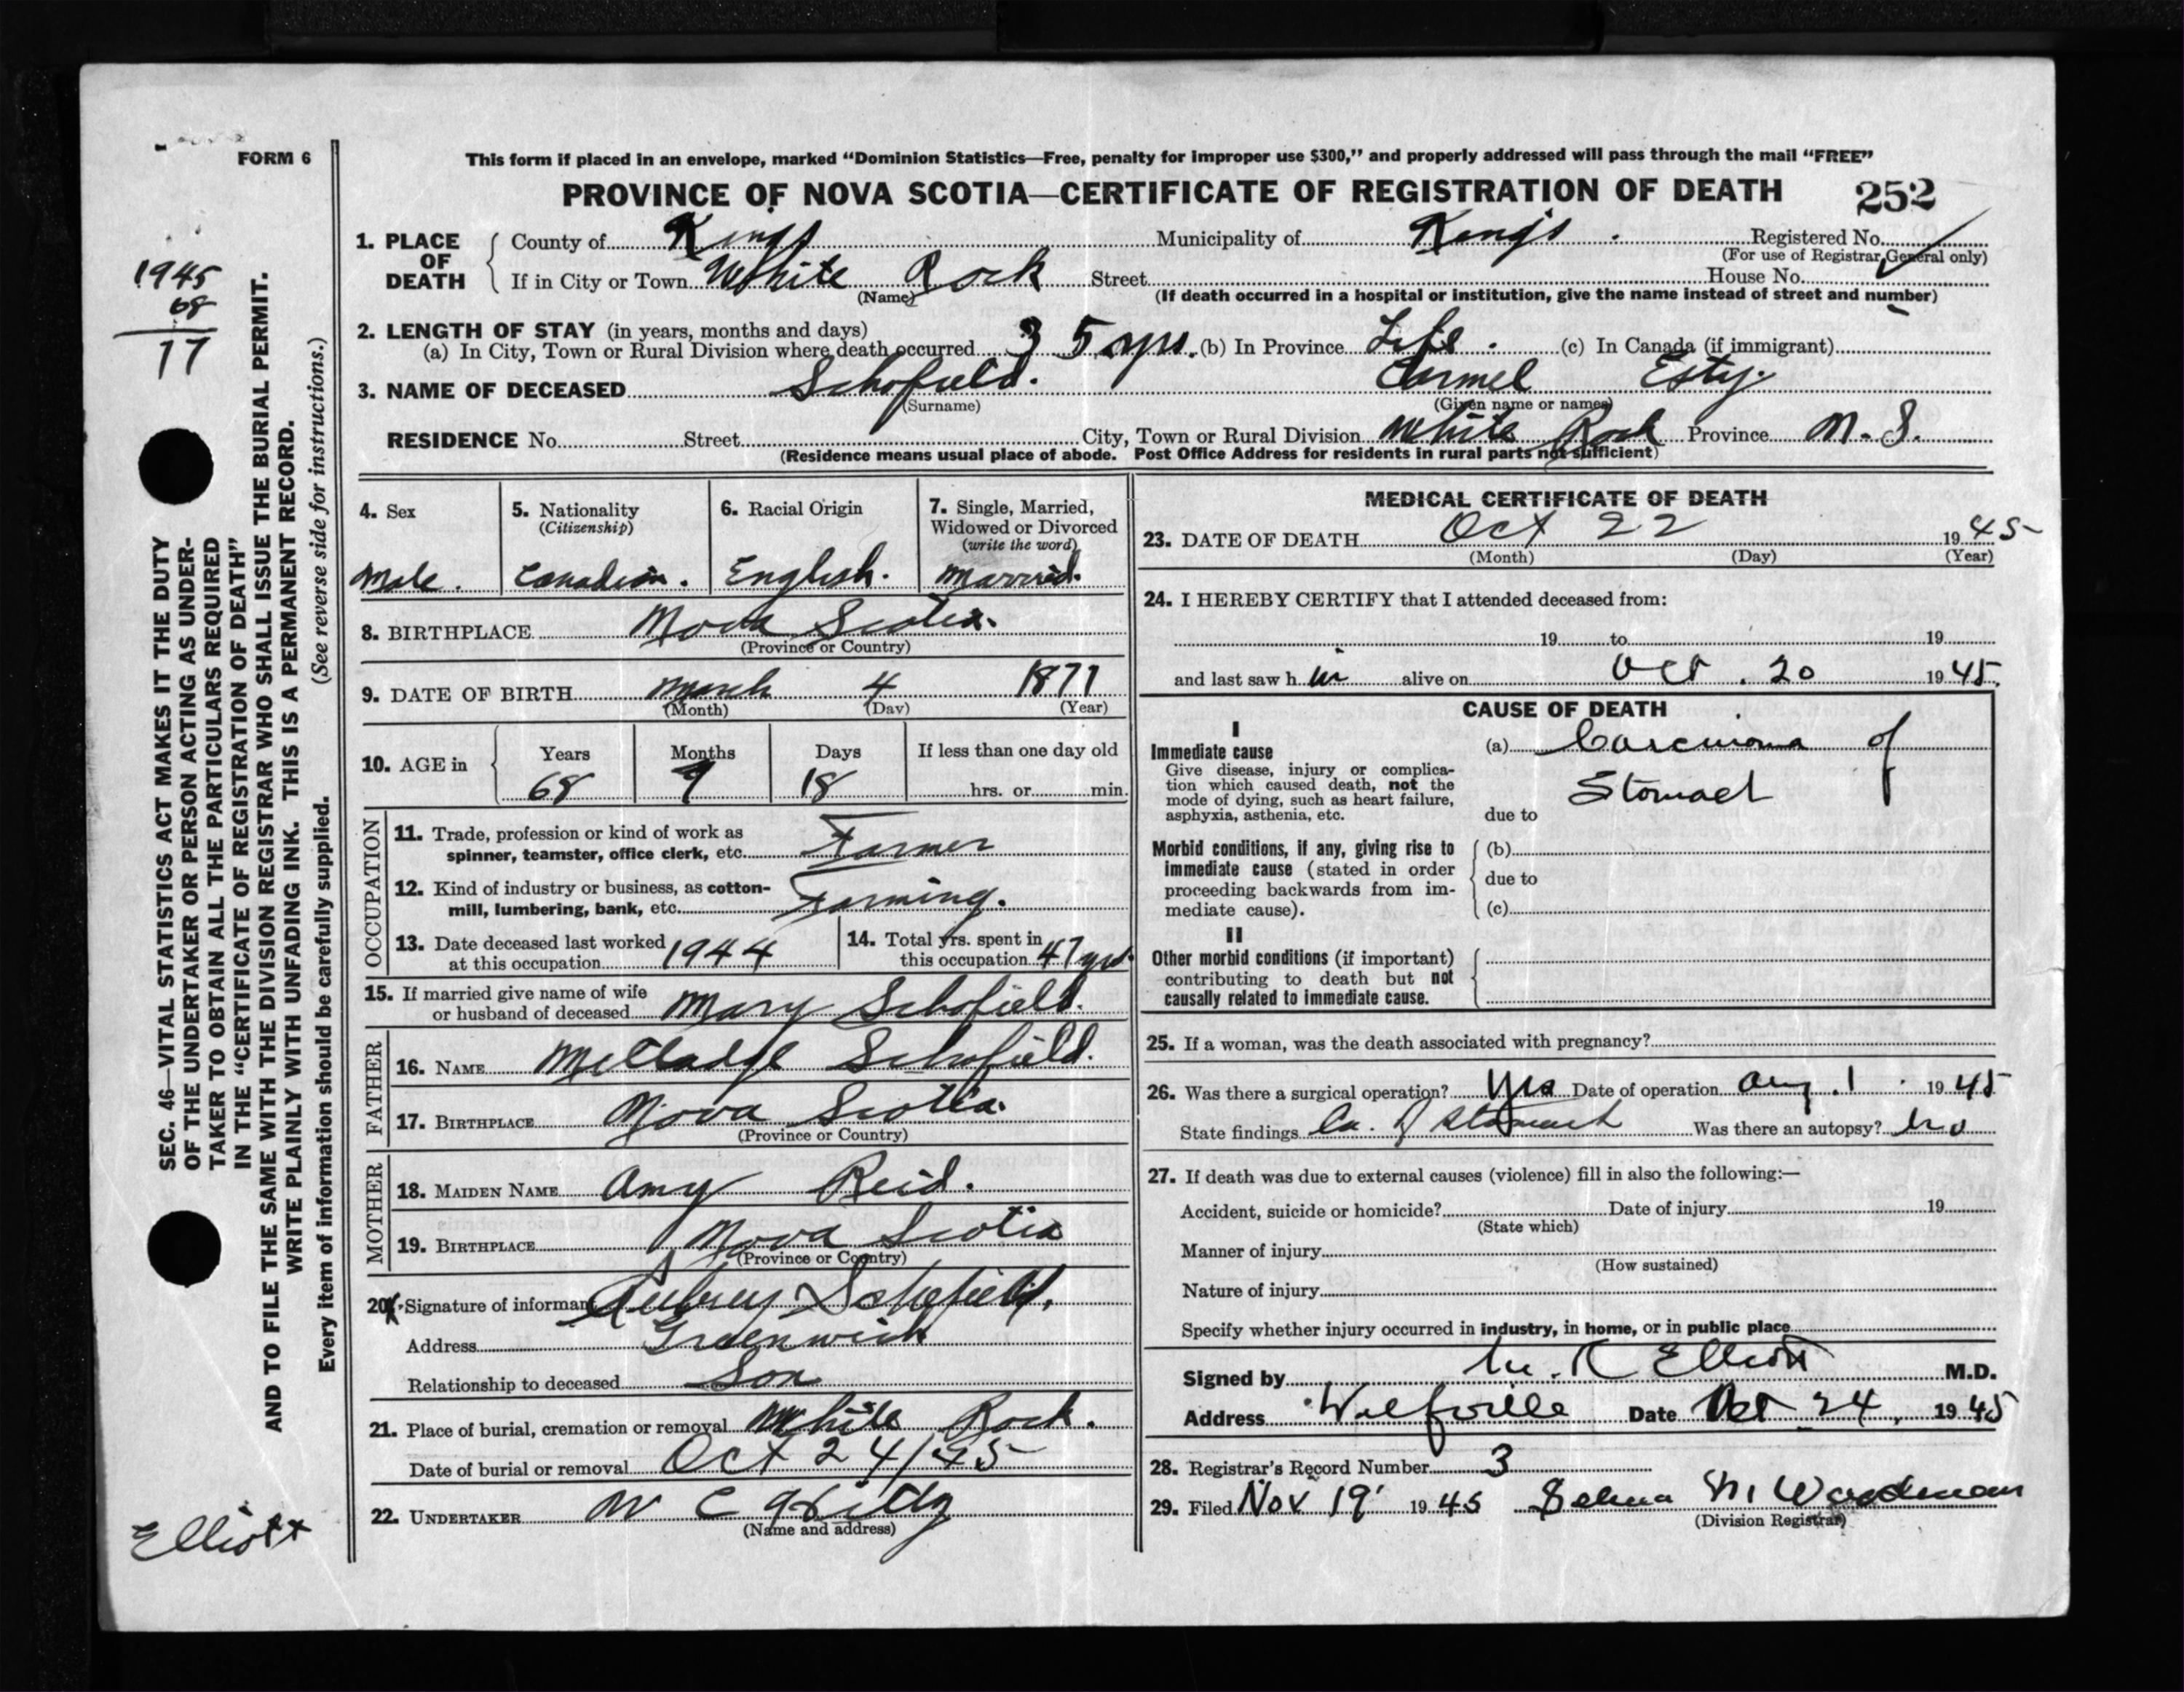 FORM 6
This form if placed in an envelope, marked “Dominion Statistics—Free, penalty for improper use $300,” and properly addressed will pass through the mail “FREE”
PROVINCE OF NOVA SCOTIA—CERTIFICATE OF REGISTRATION OF DEATH 252
1. PLACE OF DEATH County of Kings Municipality of Kings. Registered No.
(For use of Registrar General only)
If in City or Town White Rock Street House No.
(Name) (If death occurred in a hospital or institution, give the name instead of street and number)
2. LENGTH OF STAY (in years, months and days)
(a) In City, Town or Rural Division where death occurred 35 yrs. (b) In Province Life. (c) In Canada (if immigrant)
3. NAME OF DECEASED Schofield. Carmel Esty.
(Surname) (Given name or names)
RESIDENCE No. Street City, Town or Rural Division White Rock Province N.S.
(Residence means usual place of abode. Post Office Address for residents in rural parts not sufficient)
4. Sex
Male.
5. Nationality
(Citizenship)
Canadian.
6. Racial Origin
English.
7. Single, Married,
Widowed or Divorced
(write the word)
Married.
8. BIRTHPLACE Nova Scotia.
(Province or Country)
9. DATE OF BIRTH March 4 1877
(Month) (Day) (Year)
10. AGE in Years Months Days If less than one day old
68 18 hrs. or min.
OCCUPATION
11. Trade, profession or kind of work as
spinner, teamster, office clerk, etc. Farmer
12. Kind of industry or business, as cotton-
mill, lumbering, bank, etc. Farming.
13. Date deceased last worked
at this occupation 1944
14. Total yrs. spent in
this occupation 47 yrs.
15. If married give name of wife
or husband of deceased Mary Schofield.
FATHER
16. NAME Schofield.
17. BIRTHPLACE Nova Scotia.
(Province or Country)
MOTHER
18. MAIDEN NAME Amy Reid.
19. BIRTHPLACE Nova Scotia
(Province or Country)
20. Signature of informant Aubrey Schofield.
Address Greenwich
Relationship to deceased Son
21. Place of burial, cremation or removal White Rock.
Date of burial or removal Oct 24/45
22. UNDERTAKER W C
(Name and address)
MEDICAL CERTIFICATE OF DEATH
23. DATE OF DEATH Oct 22 1945
(Month) (Day) (Year)
24. I HEREBY CERTIFY that I attended deceased from:
19 to 19
and last saw h im alive on Oct. 20 1945.
CAUSE OF DEATH
I
Immediate cause
Give disease, injury or complica-
tion which caused death, not the
mode of dying, such as heart failure,
asphyxia, asthenia, etc.
(a) Carcinoma of
Stomach
due to
Morbid conditions, if any, giving rise to
immediate cause (stated in order
proceeding backwards from im-
mediate cause).
(b)
due to
(c)
II
Other morbid conditions (if important)
contributing to death but not
causally related to immediate cause.
25. If a woman, was the death associated with pregnancy?
26. Was there a surgical operation? Yes Date of operation Aug. 1. 1945
State findings Ca. of stomach Was there an autopsy? no
27. If death was due to external causes (violence) fill in also the following:—
Accident, suicide or homicide? Date of injury 19
(State which)
Manner of injury
(How sustained)
Nature of injury
Specify whether injury occurred in industry, in home, or in public place
Signed by M. R Elliott M.D.
Address Wolfville Date Oct 24, 1945
28. Registrar's Record Number 3
29. Filed Nov 19 1945 Selena M. Woodman
(Division Registrar)
SEC. 46—VITAL STATISTICS ACT MAKES IT THE DUTY
OF THE UNDERTAKER OR PERSON ACTING AS UNDER-
TAKER TO OBTAIN ALL THE PARTICULARS REQUIRED
IN THE “CERTIFICATE OF REGISTRATION OF DEATH”
AND TO FILE THE SAME WITH THE DIVISION REGISTRAR WHO SHALL ISSUE THE BURIAL PERMIT.
WRITE PLAINLY WITH UNFADING INK. THIS IS A PERMANENT RECORD.
Every item of information should be carefully supplied. (See reverse side for instructions.)
1945
68
77
Elliott